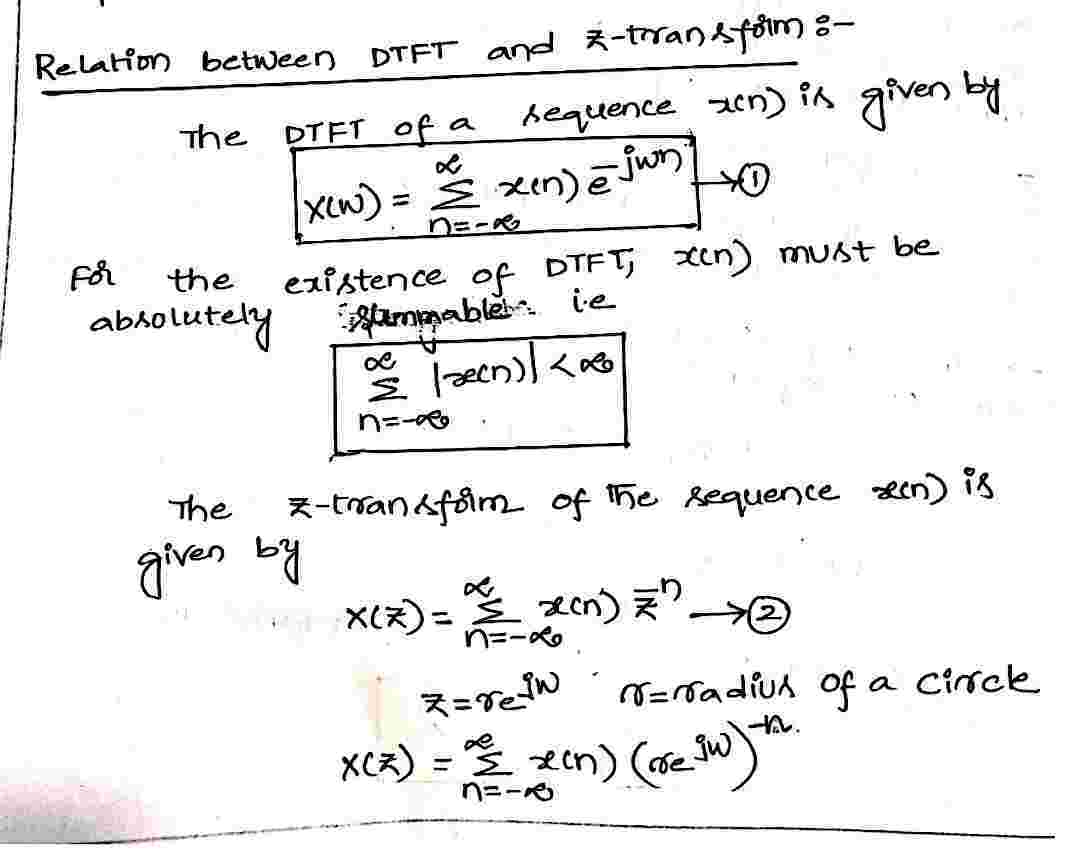 Relation between DTFT and z-transform :-
The DTFT of a sequence x(n) is given by
X(w) = ∞ Σ n=-∞ x(n) e^-jwn → ①
For the existence of DTFT, x(n) must be
absolutely summable i.e
∞ Σ n=-∞ |x(n)| < ∞
The z-transform of the sequence x(n) is
given by
X(z) = ∞ Σ n=-∞ x(n) z^-n → ②
z = re^jw r=radius of a circle
X(z) = ∞ Σ n=-∞ x(n) (re^jw)^-n.